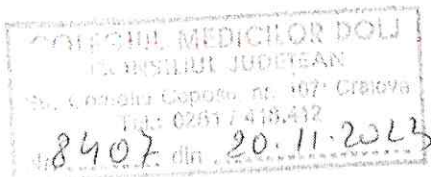 COLEGIUL MEDICILOR DOLJ
CONSILIUL JUDEȚEAN
Coposu, nr. 107, Craiova
Tel.: 0251 / 418.412
8407 din 20.11.2023